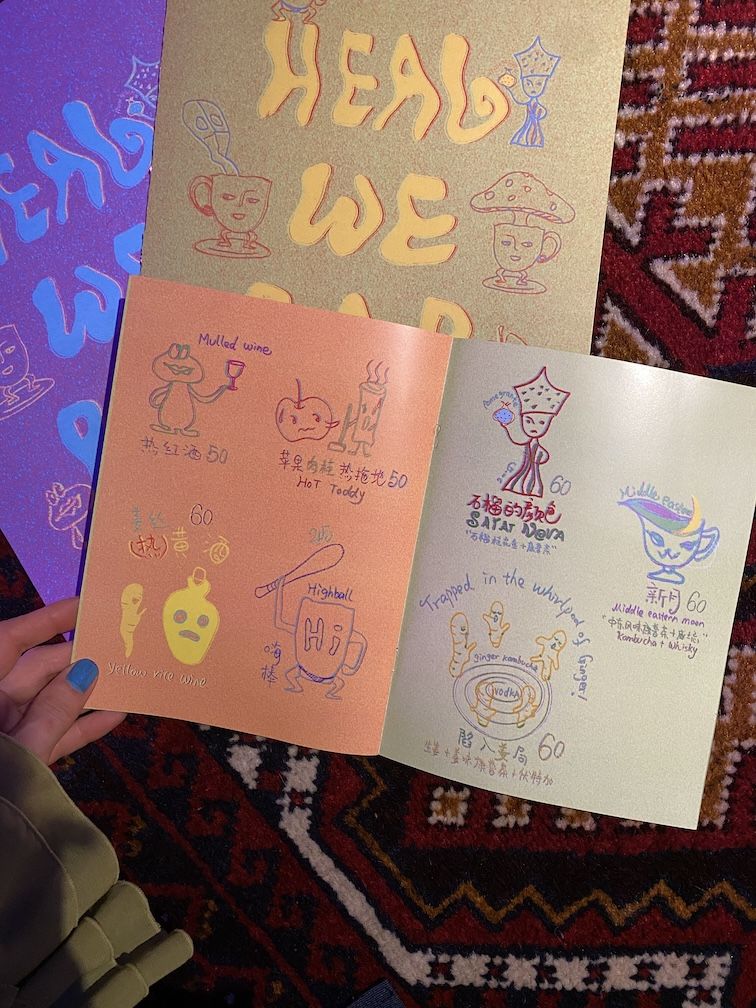 HEAL
WE
Mulled wine
热红酒 50
苹果肉桂热拖地 50
HOT
HOT Toddy
姜丝 60
(热)黄酒
yellow rice wine
Highball
Hi
嗨棒
Pomegranate
60
石榴的颜色
SAYAT NOVA
Middle eastern
新月 60
Middle eastern moon
"中东风味康普茶+威士忌"
kombucha + whisky
Trapped in the whirlpool of Ginger!
ginger kombucha
VODKA
陷入姜局 60
生姜+姜味康普茶+伏特加